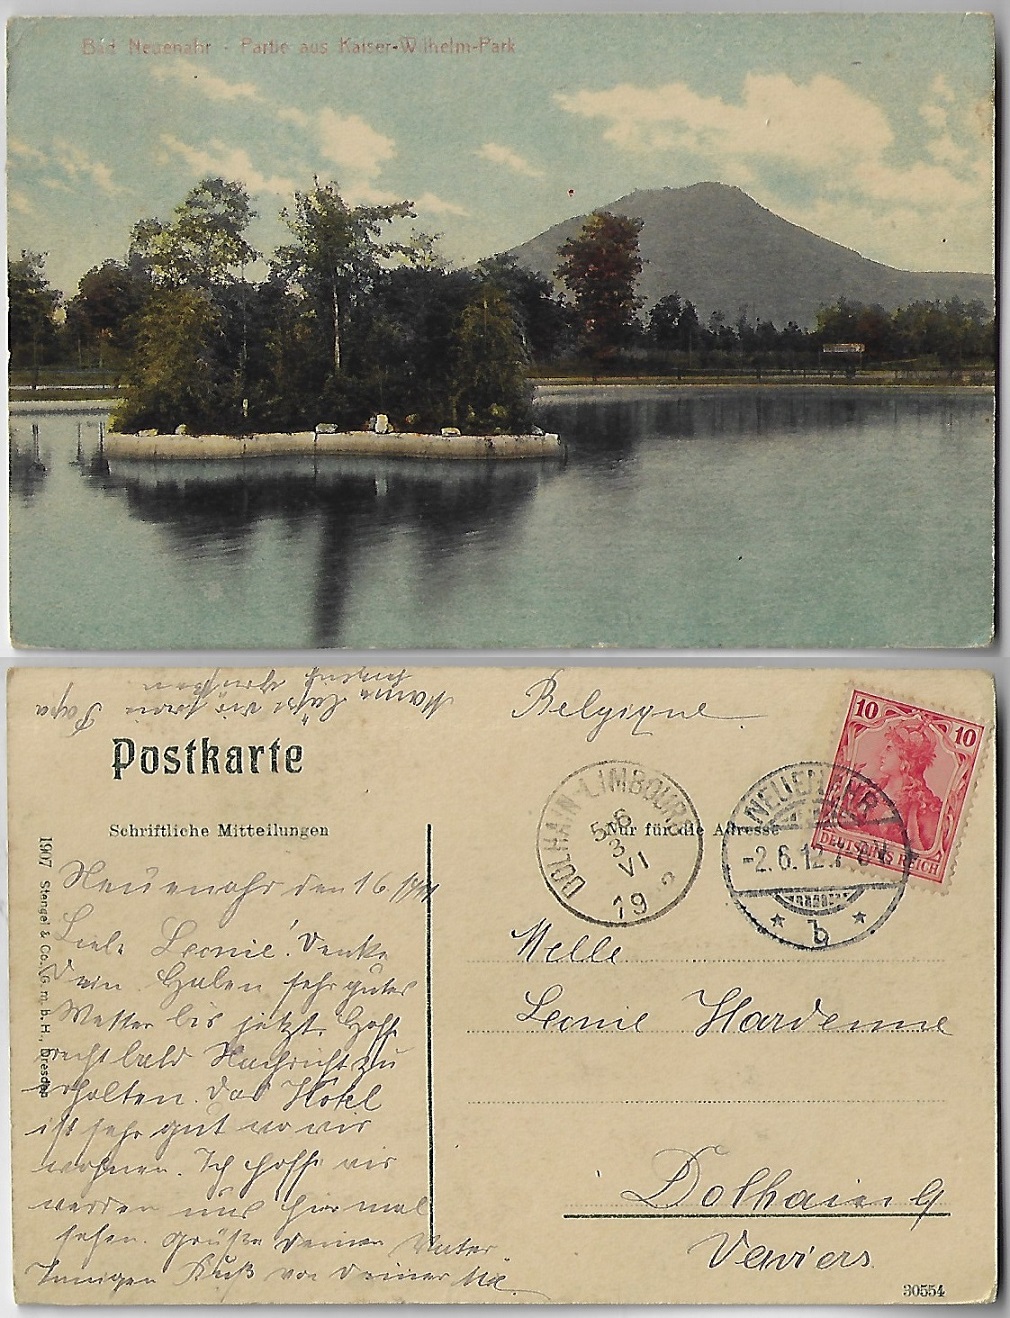 Bad Neuenahr - Partie aus Kaiser-Wilhelm-Park
Papa
Belgique
Postkarte
Schriftliche Mitteilungen
Nur für die Adresse
10 10
DEUTSCHES REICH
DOLHAIN-LIMBOURG
5-6
3
VI
19 2
NEUENAHR
-2.6.12.7-8
b
1907 Stengel & Co., G. m. b. H., Dresden
Neuenahr den 1 6.
Liebe Leonie! Denke
Dein. Haben sehr gutes
Wetter bis jetzt. Hoffe
recht bald Nachricht zu
erhalten. Das Hotel
ist sehr gut wo wir
wohnen. Ich hoffe wir
werden uns hier mal
sehen. Grüße Deinen Vater.
Innigen Kuß von Deiner
Melle
Leonie Hardenne
Dolhain
Verviers
30554